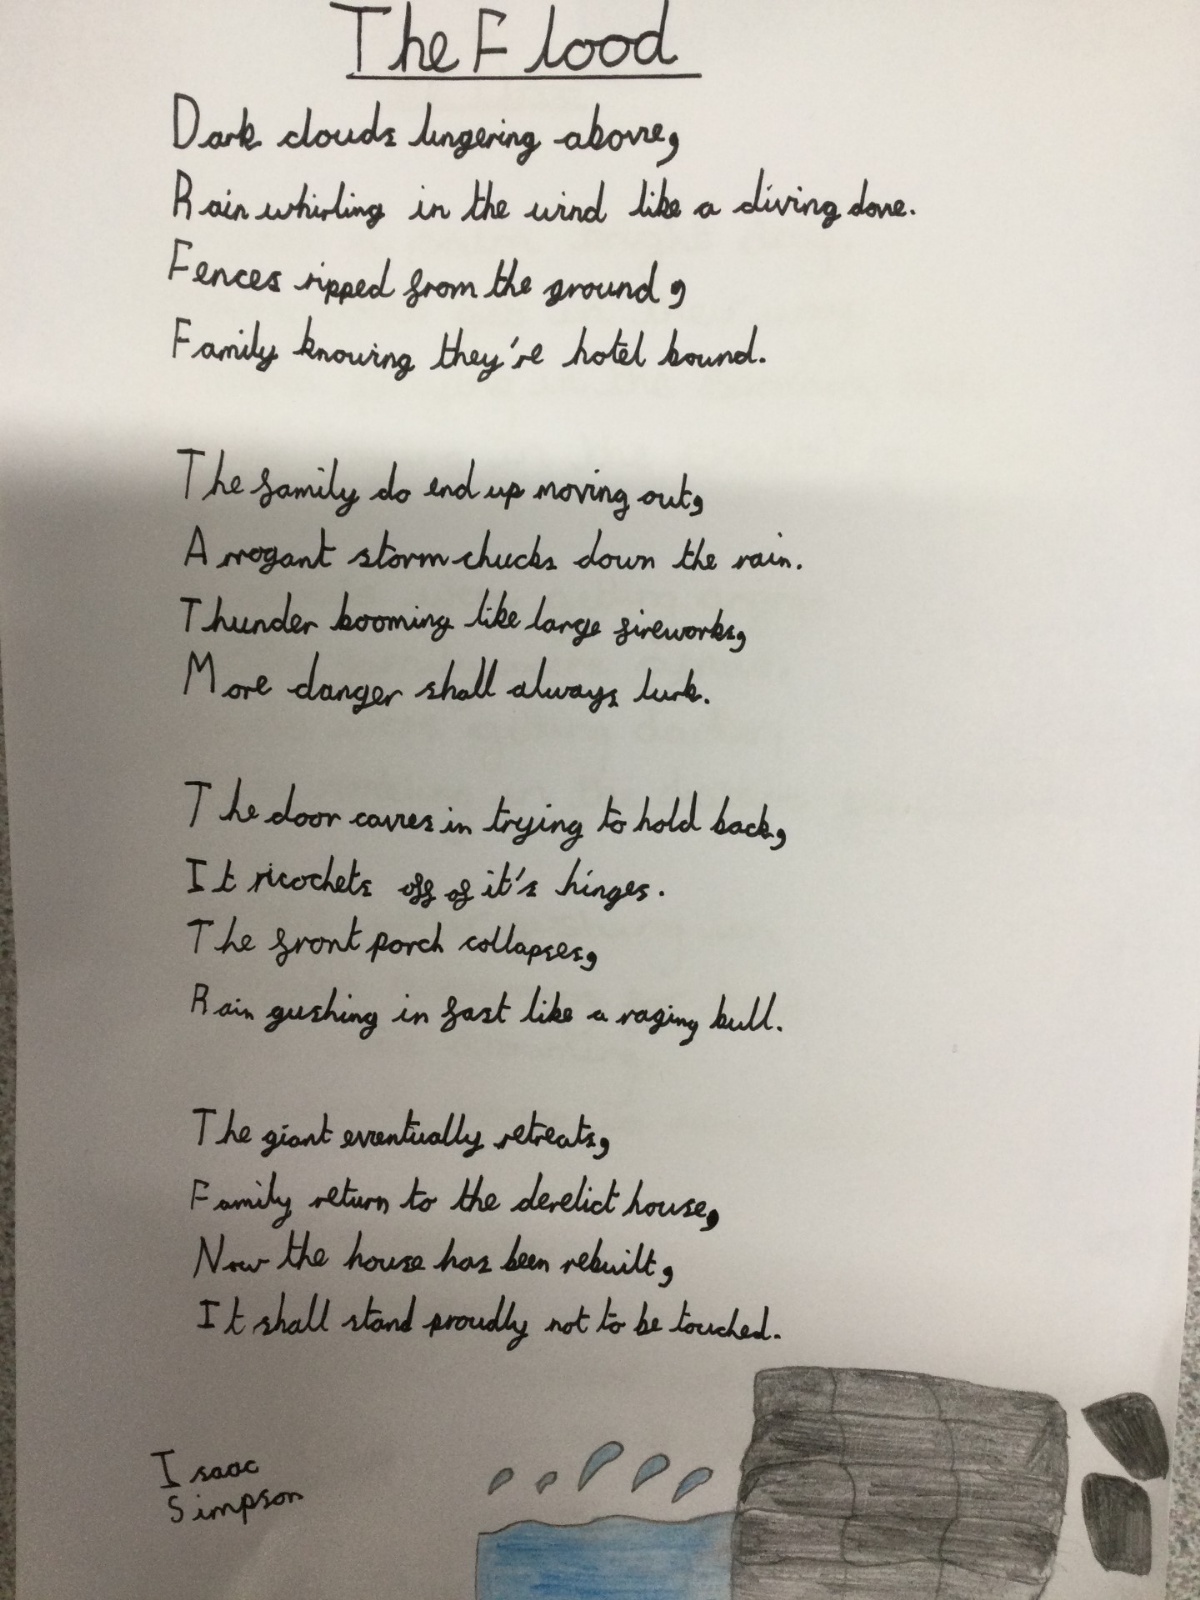 The Flood
Dark clouds lingering above,
Rain whirling in the wind like a diving dove.
Fences ripped from the ground,
Family knowing they're hotel bound.
The family do end up moving out,
Arrogant storm chucks down the rain.
Thunder booming like large fireworks,
More danger shall always lurk.
The door caves in trying to hold back,
It ricochets off of it's hinges.
The front porch collapses,
Rain gushing in fast like a raging bull.
The giant eventually retreats,
Family return to the derelict house,
Now the house has been rebuilt,
It shall stand proudly not to be touched.
Isaac
Simpson